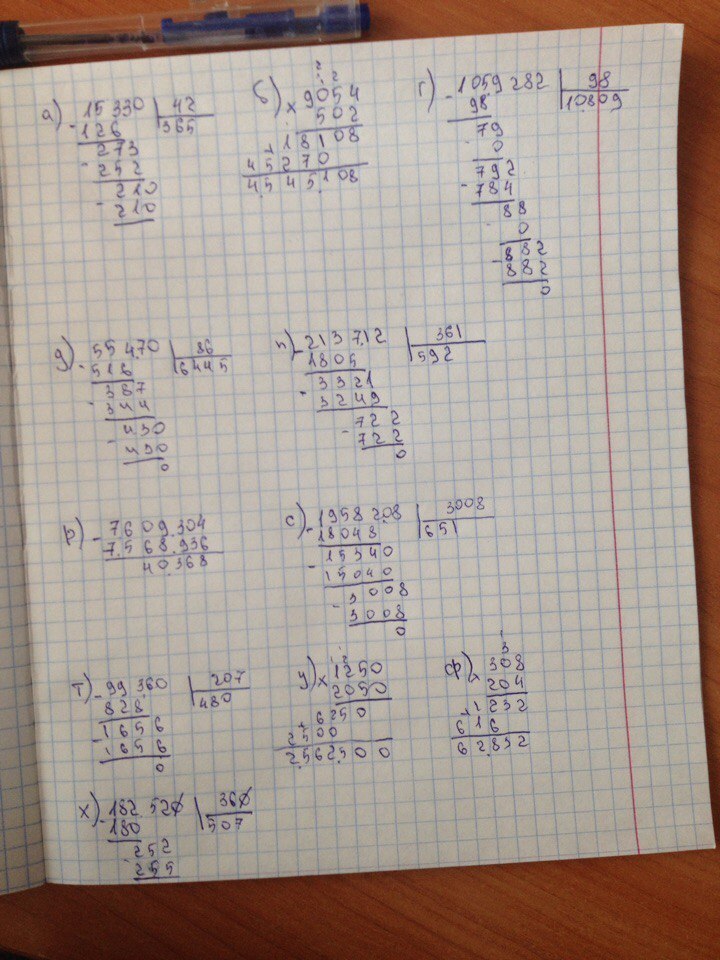 а) 15 330 | 42
- 126 | 365
273
- 252
210
- 210
б) × 9054
502
+ 18108
45270
4545108
г) - 1059 282 | 98
98 | 10809
79
- 0
792
- 784
88
- 0
882
- 882
0
д) - 55 470 | 86
516 | 6445
387
- 344
430
- 430
0
п) - 213 712 | 361
1805 | 592
3321
- 3249
722
- 722
0
р) - 7609.304
7.568.936
40.368
с) - 1958 208 | 3008
18048 | 651
15340
- 15040
3008
- 3008
0
т) - 99 360 | 207
828 | 480
1656
- 1656
0
у) × 1250
2050
+ 6250
2500
2.562500
ф) × 308
204
+ 1232
616
62.832
х) - 182 520 | 360
180 | 507
252
255